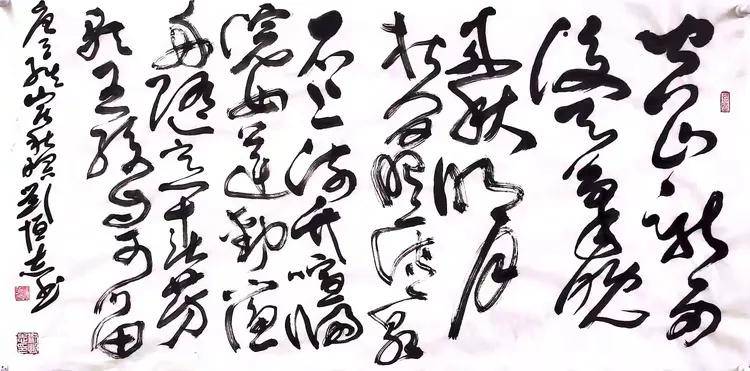 空山新雨
後天氣晚
来秋明月
松间照清泉
石上流竹喧归
浣女莲動渔
舟随意春芳
歇王孫自可留
唐王维山居秋暝 劉恒志书